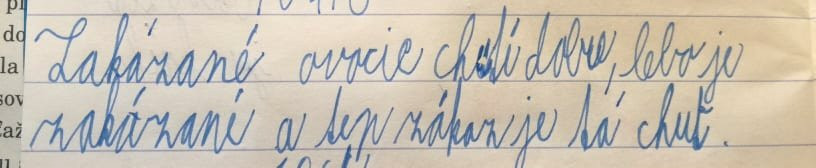 Zakázané ovocie chutí dobre, lebo je
zakázané a ten zákaz je tá chuť.